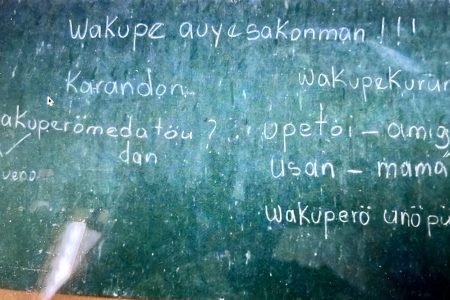 Wakupe auyesakonman !!!
Karandon
wakupekurur
akuperömedatöu ? dan
veno
opetoi - amig
usan - mamá
wakuperö unöpu